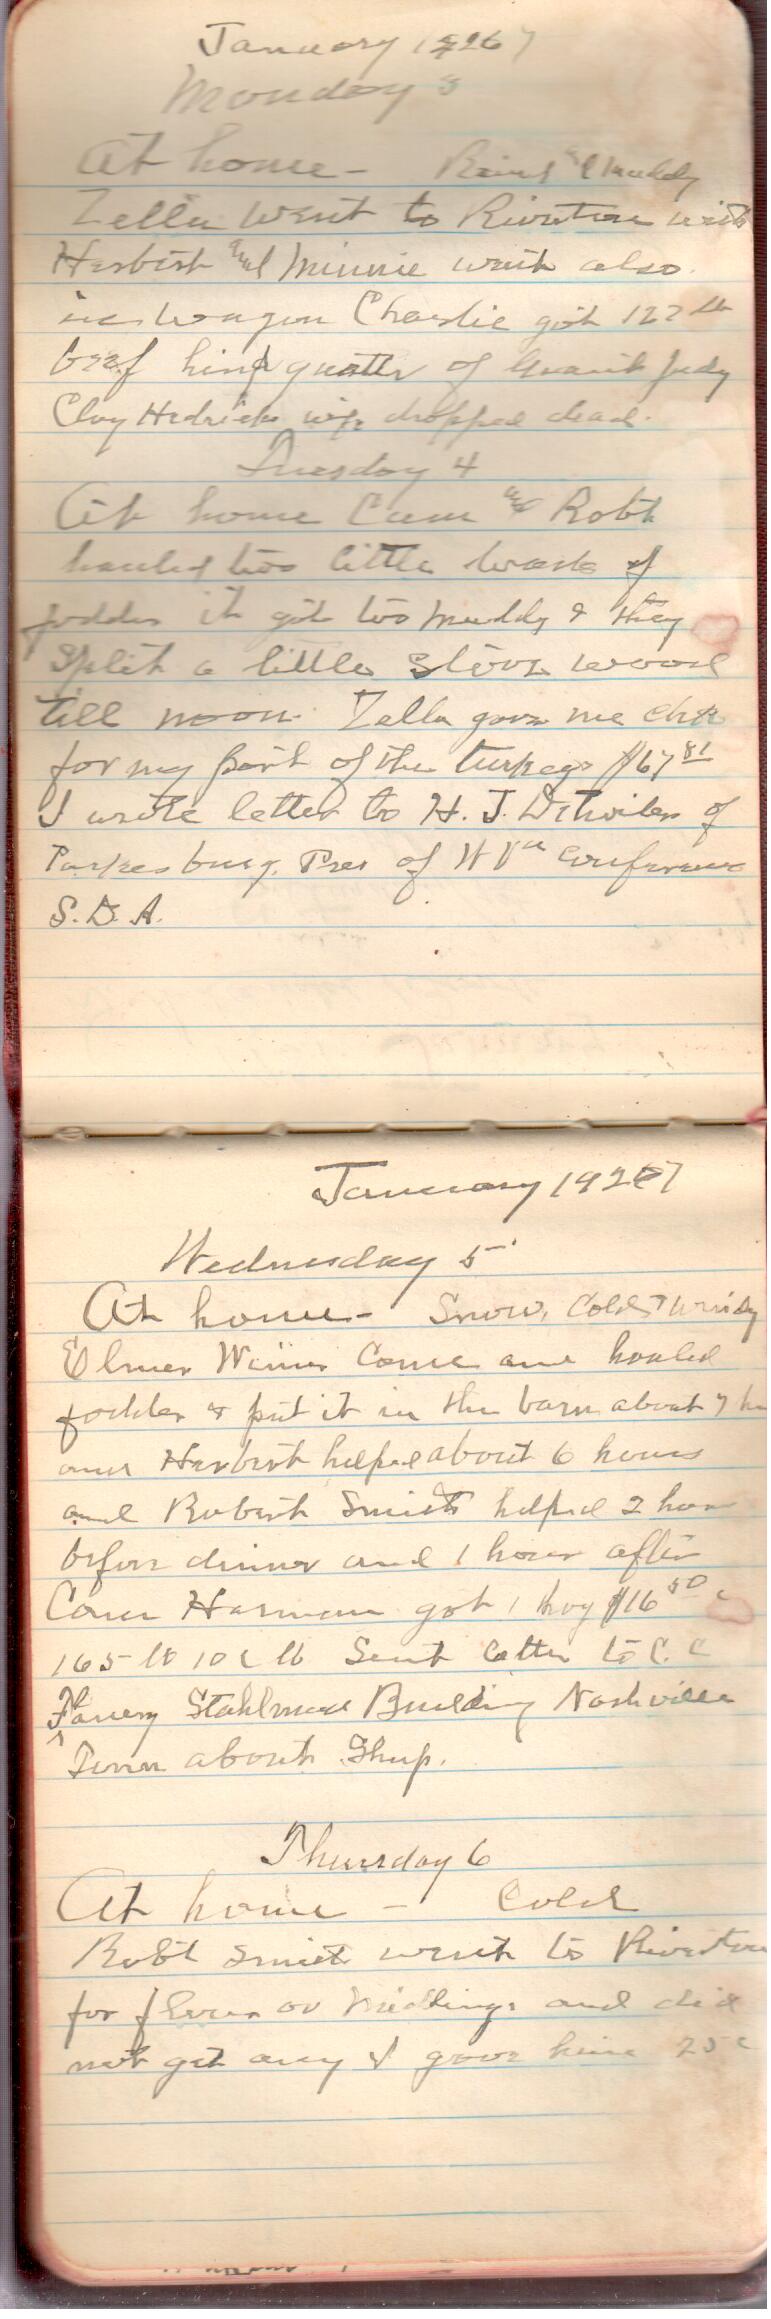 January 1927
Monday 3
At home - Rain & Muddy
Zella went to Riverton with
Herbert and Minnie went also
in wagon Charlie got 127 lb
beef hind quarter of Grant Judy
Clay Hedricks wife dropped dead.
Tuesday 4
At home Cam and Robt
hauled two little loads of
fodder it got too muddy & they
Split a little stove wood
till noon. Zella gave me chk
for my part of the turkeys $67 81
I wrote letter to H. J. Detwiler of
Parkesburg. Pres of W Va Conference
S. D. A.
January 1927
Wednesday 5
At home - Snow, Cold & Windy
Elmer Wimer Come and hauled
fodder & put it in the barn about 7 h
and Herbert helped about 6 hours
and Robert Smith helped 2 hour
before dinner and 1 hour after
Cam Harman got 1 hog $16 50
165 lb 10 c lb Sent letter to C. C
Flanery Stahlman Building Nashville
Tenn about Sheep.
Thursday 6
At home - Cold
Robt Smith went to Riverton
for flour or Middlings and did
not get any I gave him 25 c